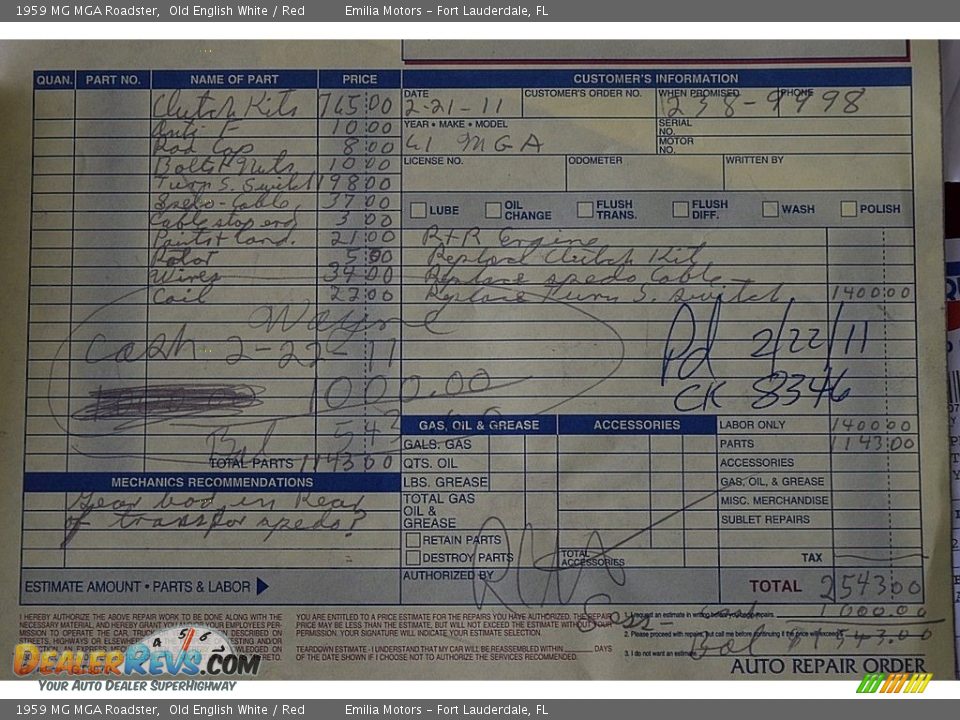 1959 MG MGA Roadster, Old English White / Red Emilia Motors - Fort Lauderdale, FL
QUAN. PART NO. NAME OF PART PRICE CUSTOMER'S INFORMATION
DATE CUSTOMER'S ORDER NO. WHEN PROMISED PHONE
Clutch Kits 765 00 2-21-11 238-9998
Anti F 10 00 YEAR • MAKE • MODEL SERIAL NO.
Rad Cap 8 00 61 MGA MOTOR NO.
Bolts & Nuts 10 00 LICENSE NO. ODOMETER WRITTEN BY
Turn S. Switch 198 00
Speedo-Cable 37 00
Cable stop end 3 00 LUBE OIL CHANGE FLUSH TRANS. FLUSH DIFF. WASH POLISH
Points & Cond. 21 00 R+R Engine
Rotor 5 00 Replaced Clutch Kit
Wires 34 00 Replace speedo Cable
Coil 22 00 Replace Turn S. Switch 1400 00
Wayne
Cash 2-22-11 Pd 2/22/11
1000.00 CK 8346
GAS, OIL & GREASE ACCESSORIES LABOR ONLY 1400 00
Bal 543 GALS. GAS PARTS 1143 00
TOTAL PARTS 1143 00 QTS. OIL ACCESSORIES
MECHANICS RECOMMENDATIONS LBS. GREASE GAS, OIL, & GREASE
Gear box in Rear TOTAL GAS OIL & GREASE MISC. MERCHANDISE
of trans for speedo? SUBLET REPAIRS
RETAIN PARTS
DESTROY PARTS TOTAL ACCESSORIES TAX
ESTIMATE AMOUNT • PARTS & LABOR AUTHORIZED BY TOTAL 2543 00
I HEREBY AUTHORIZE THE ABOVE REPAIR WORK TO BE DONE ALONG WITH THE
NECESSARY MATERIAL, AND HEREBY GRANT
YOU ARE ENTITLED TO A PRICE ESTIMATE FOR THE REPAIRS YOU HAVE AUTHORIZED. THE REPAIR
PRICE MAY BE LESS THAN THE ESTIMATE, BUT WILL NOT EXCEED THE ESTIMATE WITHOUT YOUR
PERMISSION. YOUR SIGNATURE WILL INDICATE YOUR ESTIMATE SELECTION.
TEARDOWN ESTIMATE - I UNDERSTAND THAT MY CAR WILL BE REASSEMBLED WITHIN DAYS
OF THE DATE SHOWN IF I CHOOSE NOT TO AUTHORIZE THE SERVICES RECOMMENDED.
1. I request an estimate in writing repairs. 1000.00
2. Please proceed with repairs, but call me before continuing if the price will exceed
3. I do not want an estimate. Bal 1543.00
AUTO REPAIR ORDER
4 5 6 7
DealerRevs.com
Your Auto Dealer SuperHighway
1959 MG MGA Roadster, Old English White / Red Emilia Motors - Fort Lauderdale, FL